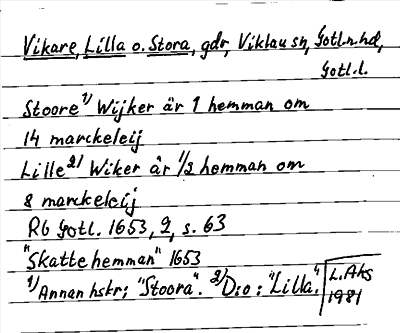 Vikare, Lilla o. Stora, gdr, Viklau sn, Gotl.n.hd,
Gotl.l.
Stoore 1) Wijker är 1 hemman om
14 marckeleij
Lille 2) Wiker är 1/2 hemman om
8 marckeleij
Rb Gotl. 1653, 2, s. 63
"Skattehemman" 1653
1) Annan hskr: "Stoora". 2) D:o: "Lilla."
L. Ahs
1981